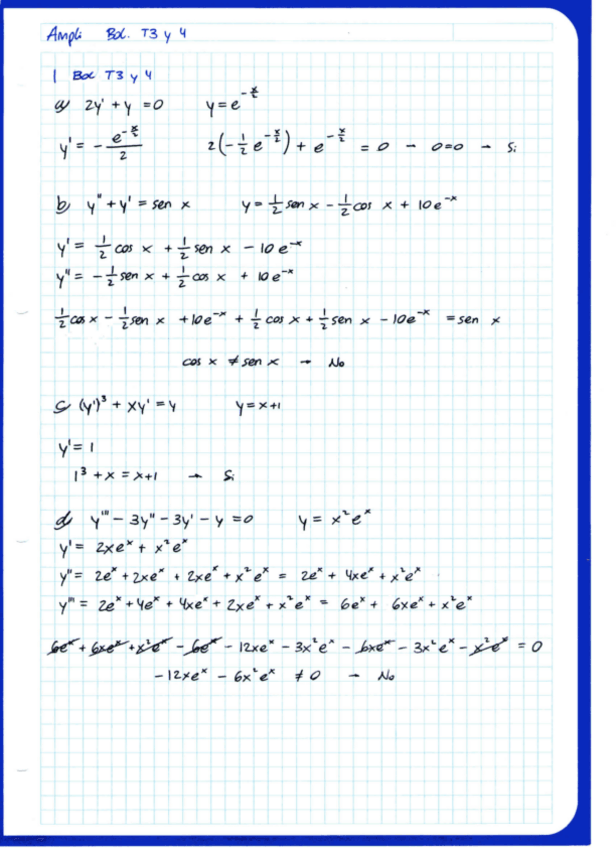 Ampli Bol. T3 y 4
1 Bol T3 y 4
a) 2y' + y = 0 y = e^{-x/2}
y' = - e^{-x/2}/2 2(-1/2 e^{-x/2}) + e^{-x/2} = 0 → 0=0 → Si
b) y'' + y' = sen x y = 1/2 sen x - 1/2 cos x + 10e^{-x}
y' = 1/2 cos x + 1/2 sen x - 10e^{-x}
y'' = - 1/2 sen x + 1/2 cos x + 10e^{-x}
1/2 cos x - 1/2 sen x + 10e^{-x} + 1/2 cos x + 1/2 sen x - 10e^{-x} = sen x
cos x ≠ sen x → No
c) (y')³ + xy' = y y = x+1
y' = 1
1³ + x = x+1 → Si
d) y''' - 3y'' - 3y' - y = 0 y = x²e^x
y' = 2xe^x + x²e^x
y'' = 2e^x + 2xe^x + 2xe^x + x²e^x = 2e^x + 4xe^x + x²e^x
y''' = 2e^x + 4e^x + 4xe^x + 2xe^x + x²e^x = 6e^x + 6xe^x + x²e^x
6e^x + 6xe^x + x²e^x - 6e^x - 12xe^x - 3x²e^x - 6xe^x - 3x²e^x - x²e^x = 0
-12xe^x - 6x²e^x ≠ 0 → No